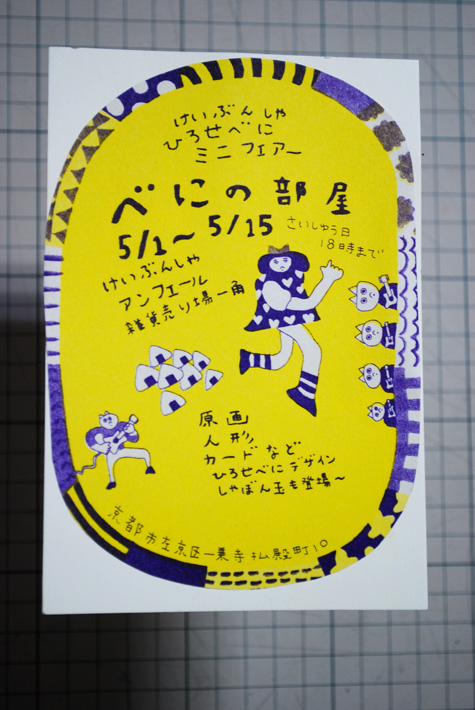 けいぶんしゃ
ひろせべに
ミニフェアー
べにの部屋
5/1～5/15
さいしゅう日
18時まで
けいぶんしゃ
アンフェール
雑貨売り場一角
原画
人形
カードなど
ひろせべにデザイン
しゃぼん玉も登場～
京都市左京区一乗寺払殿町10